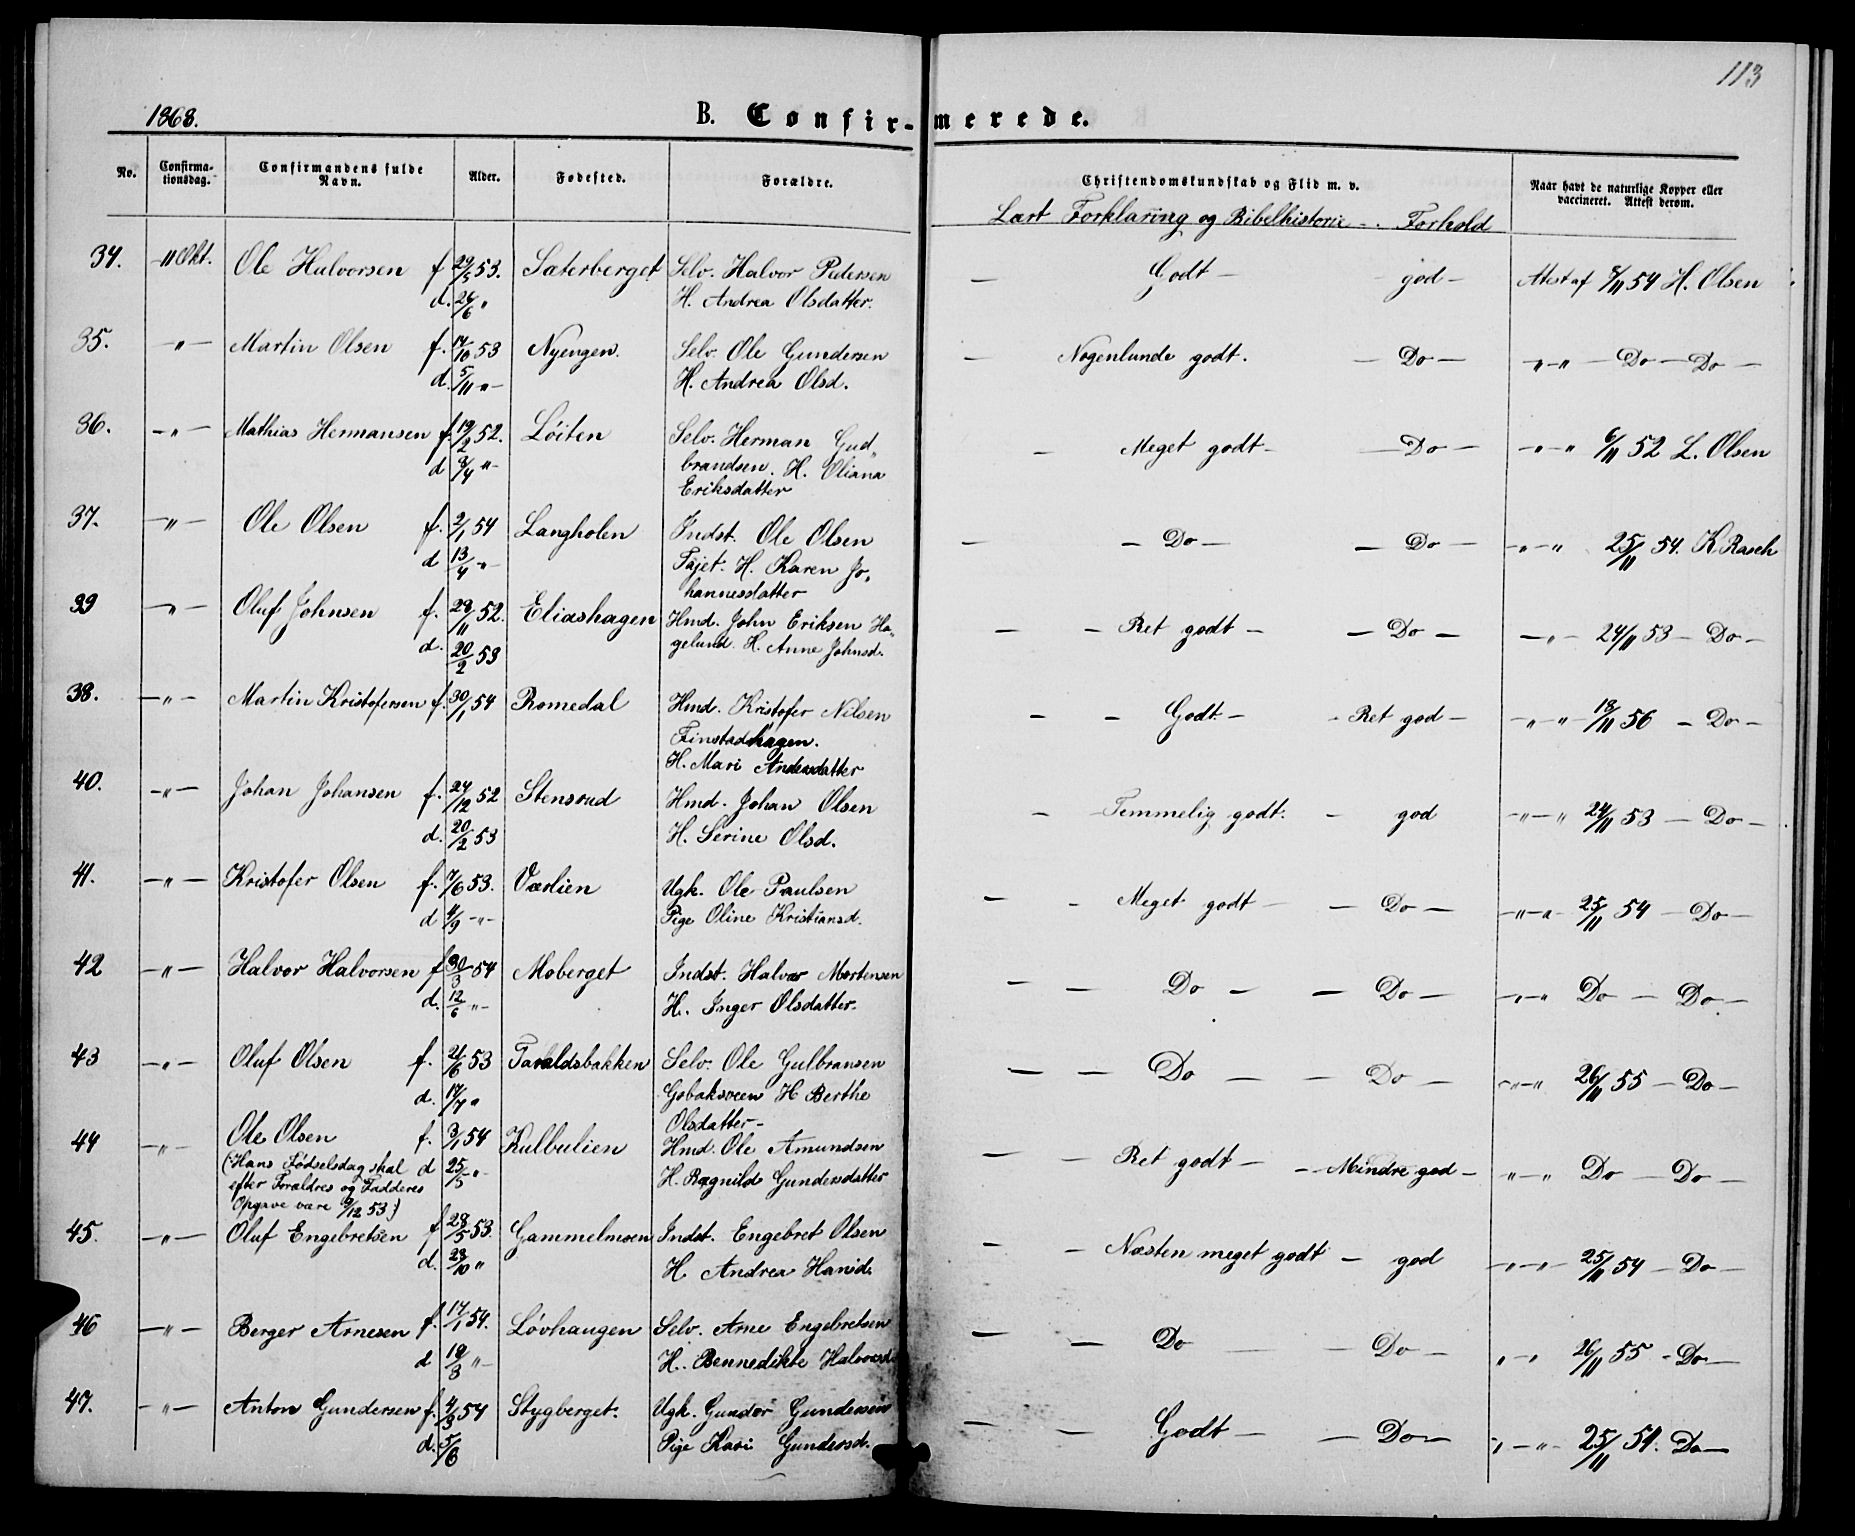 113
1868. B. Confir- merede.
No. Confirma-tionsdag. Confirmandens fulde Navn. Alder. Fødested. Forældre. Christendomskundskab og Flid m. v. Naar havt de naturlige Kopper eller vaccineret. Attest derom.
Læst Forklaring og Bibelhistorie - . Forhold
34. -"Okt. Ole Halvorsen f 29/5 53. Sæterberget Selv. Halvor Pedersen — Godt — god — Attest af 8/11 54 H. Olsen
d. 26/6 " H. Andrea Olsdatter.
35. —"— Martin Olsen f. 17/10 53 Nyengen. Selv. Ole Gundersen — Nogenlunde godt. — Do — "—"— Do — Do —
d. 5/11 "— H. Andrea Olsd.
36. —"— Mathias Hermansen f. 19/2 52. Löiten Selv. Herman Gud„ — Meget godt — — Do — —"—" 6/11 52 L. Olsen
d 3/4 "— brandsen. H. Oliana
Eriksdatter
37. —"— Ole Olsen f. 2/1 54 Langholen Indst. Ole Olsen — — Do — — Do — —"—" 25/11 54. K. Rasch
d 13/4 "— Tajet. H. Karen Jo„
hannesdatter
39 —"— Oluf Johnsen f. 28/11 52. Eliashagen Hmd. John Eriksen Ha„ — — Ret godt — — Do — —"— 24/11 53 — Do —
d. 20/2 53 gelund. H. Anne Johnsd.
38. —"— Martin Kristofersen f. 30/1 54 Romedal Hmd. Kristofer Nilsen — — Godt — - Ret god — —"—"— 18/11 56 — Do —
Finstadhagen.
H. Mari Andersdatter
40. —"— Johan Johansen f. 24/12 52 Stensrud Hmd. Johan Olsen — — Temmelig godt. — god —"—" 24/11 53 — Do —
d. 20/2 53 H. Serine Olsd.
41. —"— Kristofer Olsen f. 7/6 53. Værlien Ugk. Ole Paulsen — - Meget godt — — Do — —"—"— 25/11 54 — Do —
d 4/9 —"— Pige Oline Kristiansd.
42 —"— Halvor Halvorsen f 30/3 54 Moberget Indst. Halvor Mortensen — — Do — — Do — —"—" Do — Do —
d. 12/6 "— H. Inger Olsdatter.
43 —"— Oluf Olsen f. 21/6 53 Taraldsbakken Selv. Ole Gulbransen — — Do — — Do — "—"— 26/11 55 — Do —
d. 17/7 " Gobaksveen H Berthe
Olsdatter—
44 —"— Ole Olsen f. 3/1 54 Kulbulien Hmd. Ole Amundsen — — Ret godt — — Mindre god — "—" Do — Do —
(Hans Fødselsdag skal d 25/5 "— H. Ragnild Gundersdatter
efter Forældres og Fadderes
Opgave være 9/12 53.)
45. —"— Oluf Engebretsen f 28/5 53. Gammelmoen Indst. Engebret Olsen — — Næsten meget godt — god —"—"— 25/11 54 — Do —
d. 23/10 " H. Andrea Hansd.
46 —"— Berger Arnesen f. 17/1 54. Lövhaugen Selv. Arne Engebretsen — — Do — — Do — "—" 26/11 55 - Do —
d 19/3 "— H. Bennedikte Halvorsd
47. —"— Anton Gundersen f. 4/3 54 Stygberget. Ugk. Gunder Gundersen — — Godt — — Do — "—"— 25/11 54. Do —
d. 5/6 Pige Kari Gundersd.